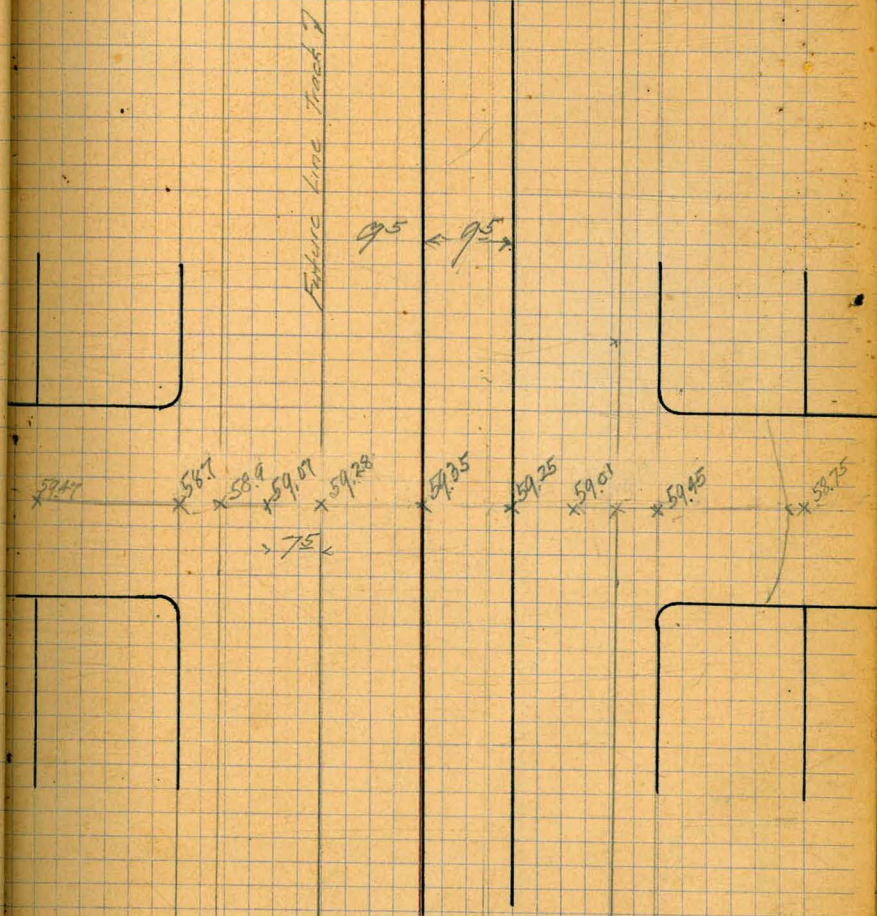 Future Line Track ?
95
95
59.47
58.7
58.9
59.07
59.28
59.35
59.25
59.01
59.45
58.75
75